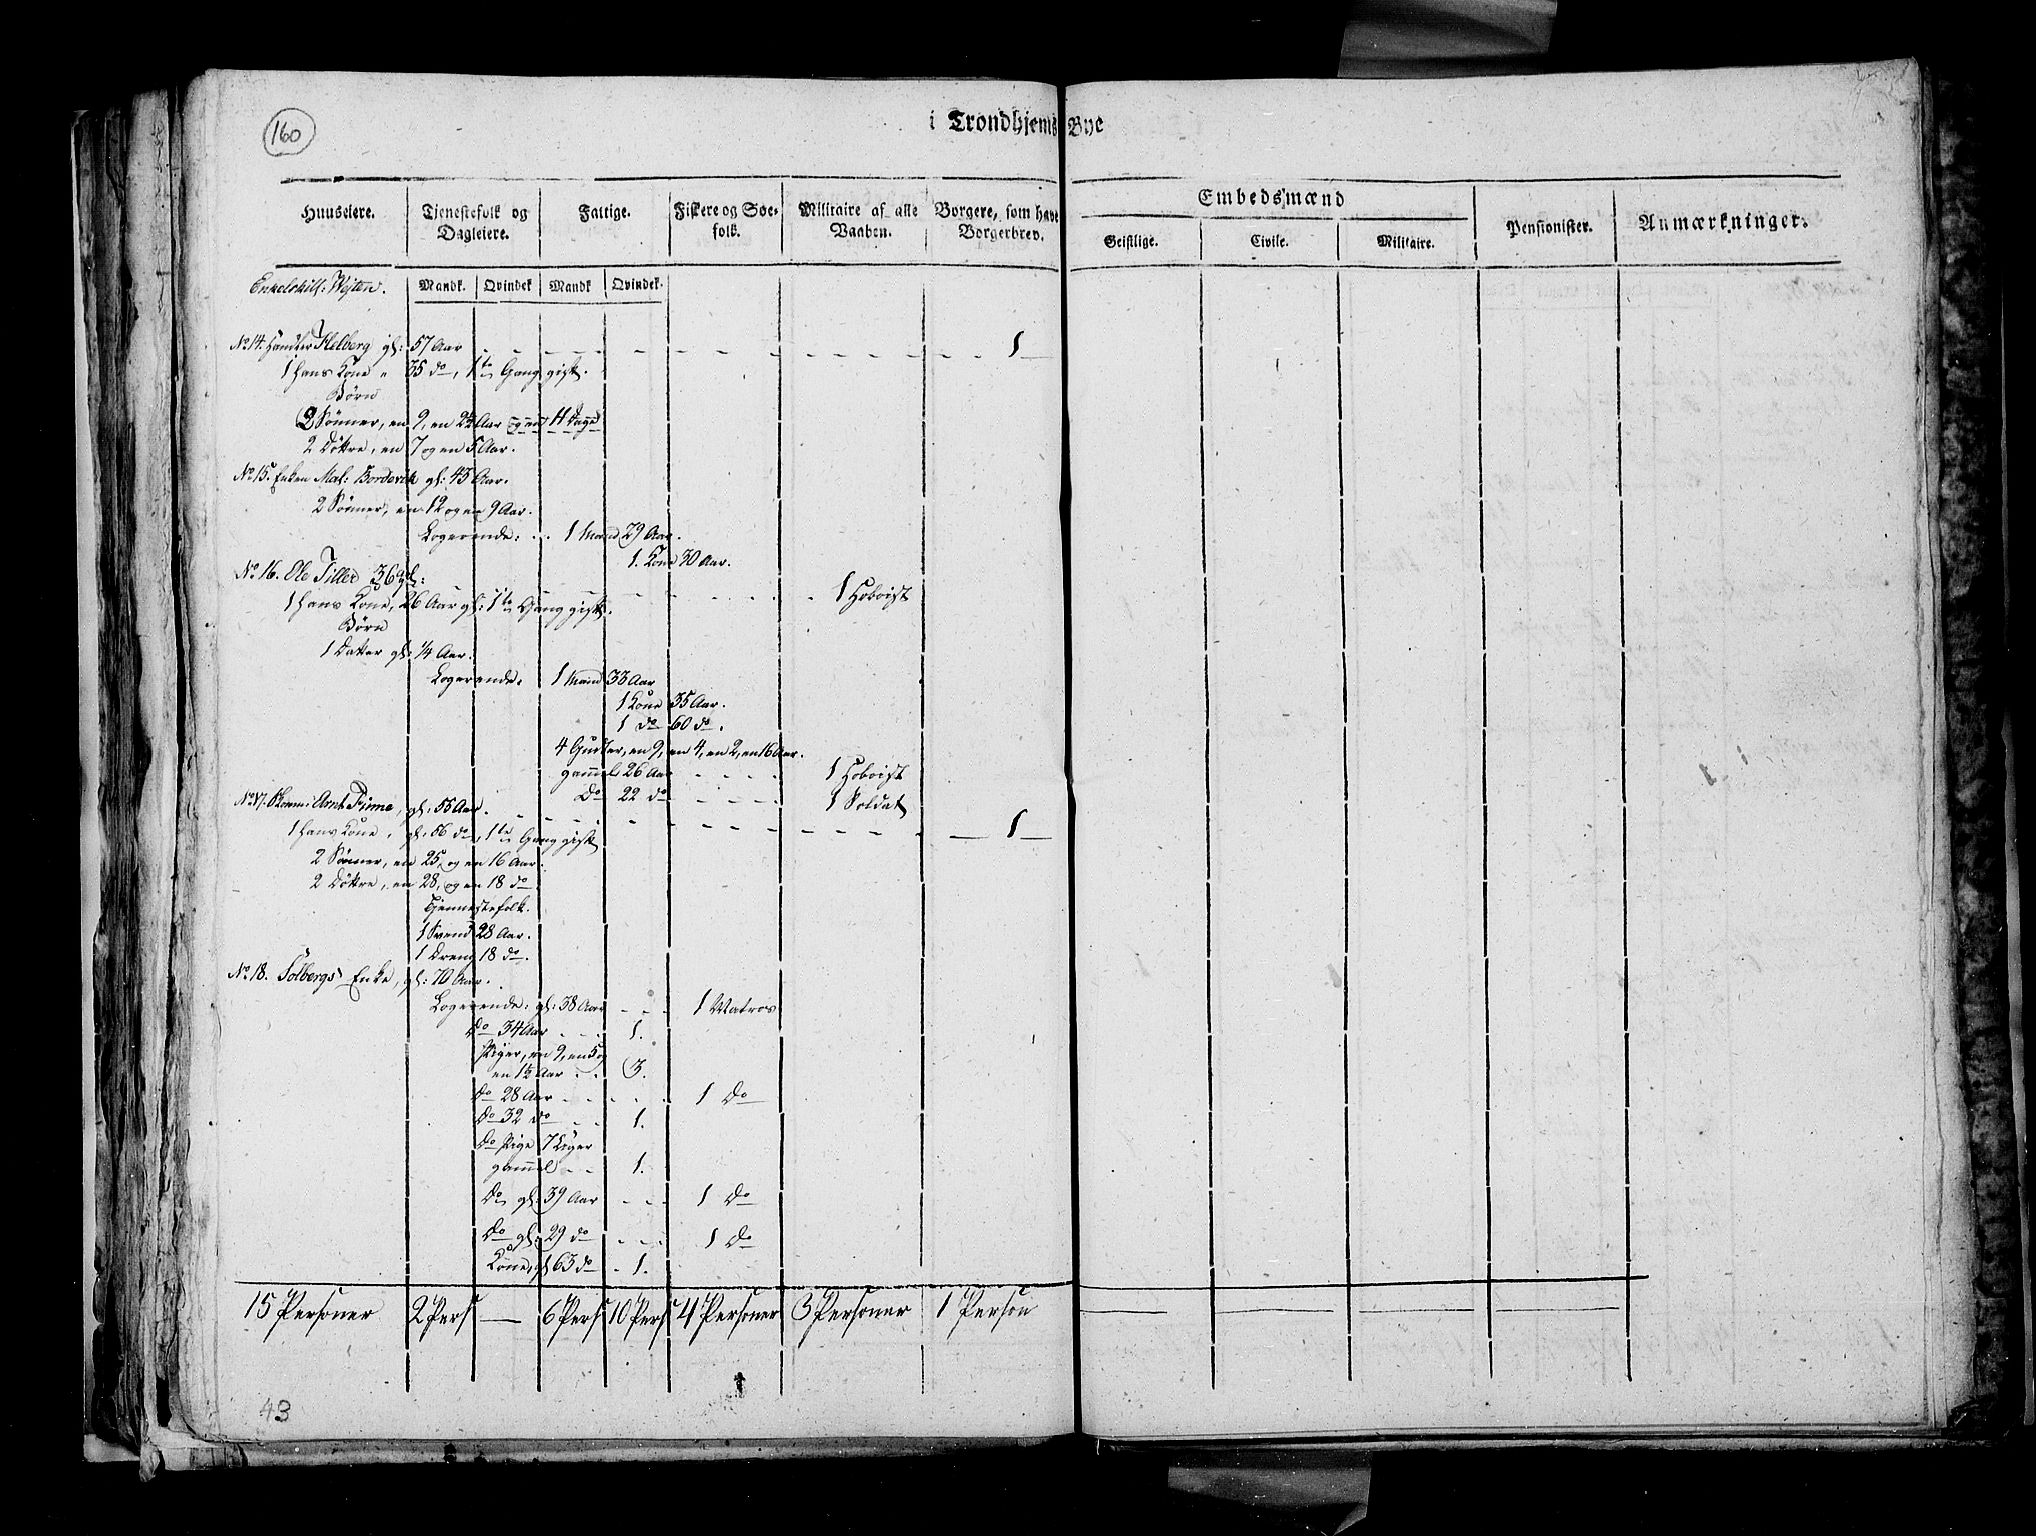 160
i Trondhjems Bye
Huuseiere. Tjenestefolk og Dagleiere. Fattige. Fiskere og Søe-folk. Militaire af alle Vaaben. Borgere, som have Borgerbrev. Embedsmænd Pensionister. Anmærkninger.
Geistlige. Civile. Militaire.
Enkelskill: Vejten. Mandk. Qvindek Mandk Qvindek.
No 14. Handler Flelberg gl: 57 Aar 1
1 hans Kone " 35 do, 1te Gang gift.
Børn
3 Sønner, en 9, en 2½ Aar og en 14 Dage
2 Døttre, en 7 og en 5 Aar.
No 15. Enken Mal: Borderik gl: 45 Aar.
2 Sønner, en 12 og en 9 Aar.
Logerende: 1 Mand 29 Aar.
1. Kone 30 Aar.
No 16. Ole Tiller 36 gl: 1 Hoboist
1 hans Kone, 26 Aar gl: 1te Gang gift.
Børn
1 Datter gl: 1/4 Aar.
Logerende. 1 Mand 33 Aar
1 Kone 35 Aar.
1 do 60 do.
4 Gutter, en 9, en 4, en 2, en 16 Aar.
gammel 26 Aar 1 Hoboist
Do 22 do 1 Soldat
No 17. Skom: Arnt Rinne, gl: 55 Aar. 1
1 hans Kone, gl: 56 do, 1te Gang gift
2 Sønner, en 25, og en 16 Aar.
2 Døttre, en 28, og en 18 do
Tjennestefolk.
1 Svend 28 Aar.
1 Dreng 18 do.
No 18. Solbergs Enke, gl: 70 Aar.
Logerende: gl: 38 Aar 1 Matros
Do 34 Aar 1.
Piger, en 9, en 5 og
en 1½ Aar 3.
Do 28 Aar 1 Do
Do 32 do 1.
Do Pige 7 Uger
gammel 1.
Do gl: 39 Aar 1 Do
Do gl: 29 do 1 Do
Kone, gl 63 do 1.
15 Personer 2 Pers — 6 Pers 10 Pers 4 Personer 3 Personer 1 Person
43